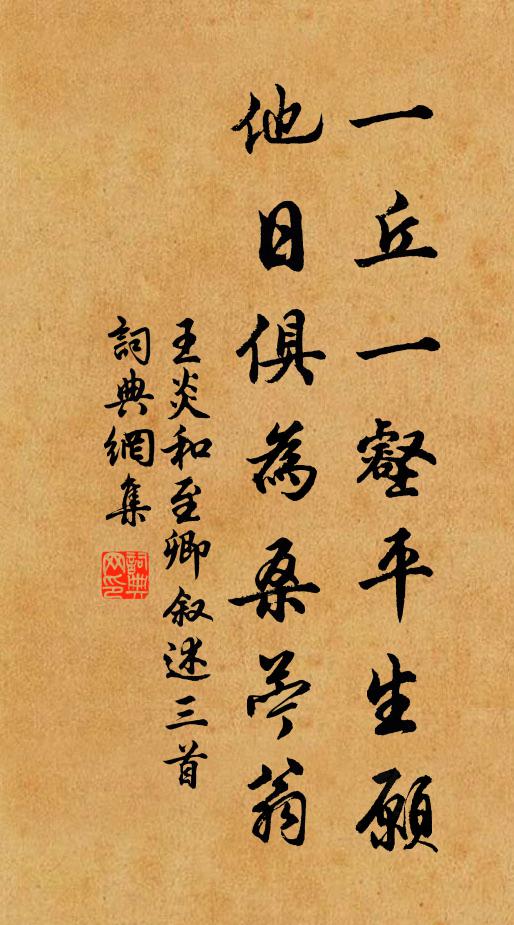 一丘一壑平生願
他日俱為桑苧翁
王炎和至卿叙述三首
詞典網集
詞典网印